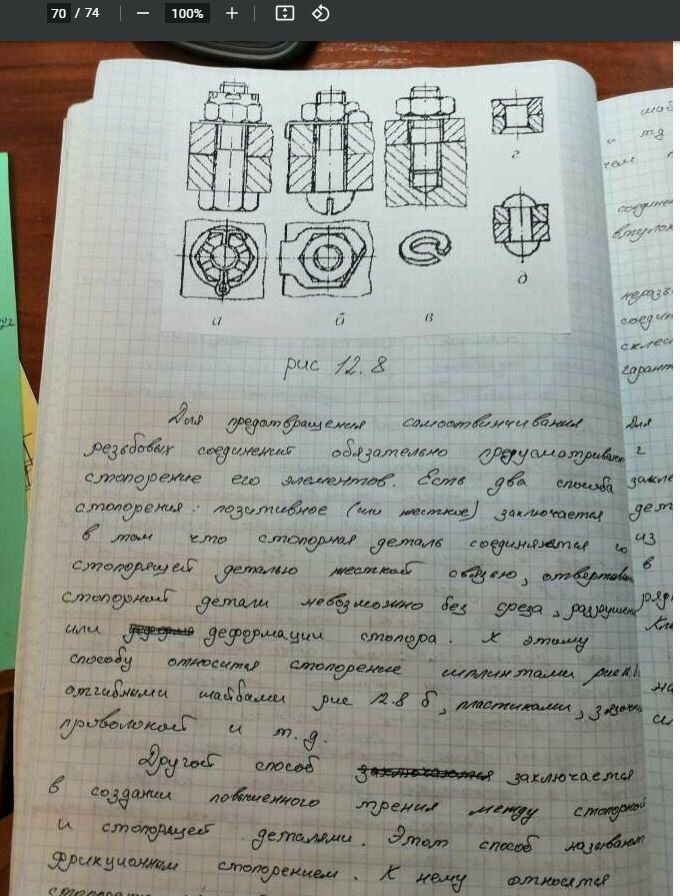 70 / 74 — 100% +
г
д
а б в
рис 12.8
Для предотвращения самоотвинчивания
резьбовых соединений обязательно предусматривают
стопорение его элементов. Есть два способа
стопорения: позитивное (или жесткое) заключается
в том что стопорная деталь соединяются со
стопорящей деталью жесткой связью, отвертывание
стопорной детали невозможно без среза, разрушения
или деформации стопора. К этому
способу относится стопорение шплинтами рис
отгибными шайбами рис 12.8 б, пластиками,
проволокой и т.д.
Другой способ заключается
в создании повышенного трения между стопорной
и стопорящей деталями. Этот способ называют
фрикционном стопорением. К нему относятся
и т.д
чем
соединен
втулок
неразъ
соедин
склеи
гарант
для
г
закле
дет
из
в
ряд
Кле
на